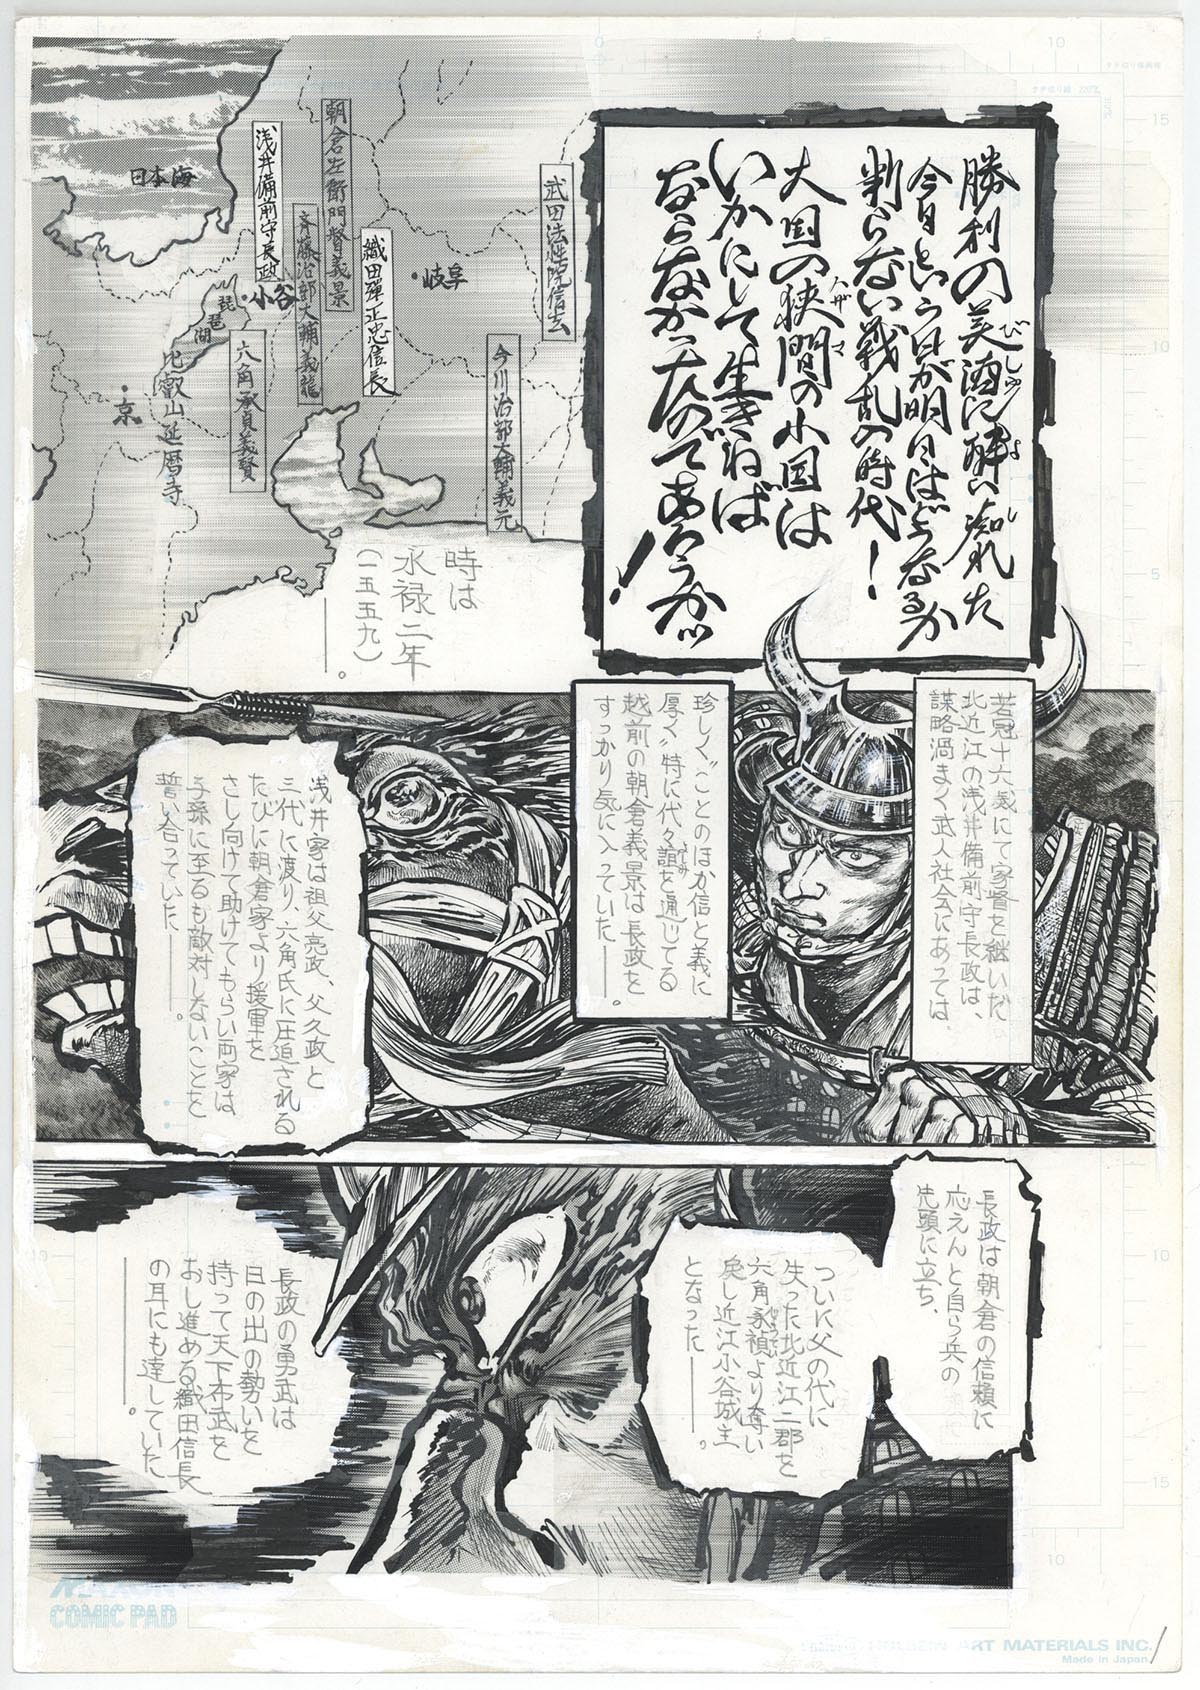 勝利の美酒に酔い痴れた
びしゅ
よ
し
今日という日が明日はどうなるか
判らない戦乱の時代!
大国の狭間の小国は
ハザマ
いかにして生きねば
ならなかったのであろうか!!
日本海
朝倉左衛門督義景
浅井備前守長政
斉藤治部大輔義龍
織田弾正忠信長
武田法性院信玄
今川治部大輔義元
六角承貞義賢
岐阜
小谷
琵琶湖
比叡山延暦寺
京
時は
永禄二年
(一五五九)
――。
若冠十六歳にて家督を継いだ
北近江の浅井備前守長政は、
謀略渦まく武人社会にあっては
珍しく〝ことのほか信と義に
厚く〟特に代々誼を通じてる
よしみ
越前の朝倉義景は長政を
すっかり気に入っていた――。
浅井家は祖父亮政、父久政と
三代に渡り、六角氏に圧迫される
たびに朝倉家より援軍を
さし向けて助けてもらい両家は
子孫に至るも敵対しないことを
誓い合っていた――。
長政は朝倉の信頼に
応えんと自ら兵の
先頭に立ち、
ついに父の代に
失った北近江二郡を
六角承禎より奪い
返し近江小谷城主
となった――。
長政の勇武は
日の出の勢いを
持って天下布武を
おし進める織田信長
の耳にも達していた
――。
COMIC PAD
ART MATERIALS INC.
Made in Japan
1